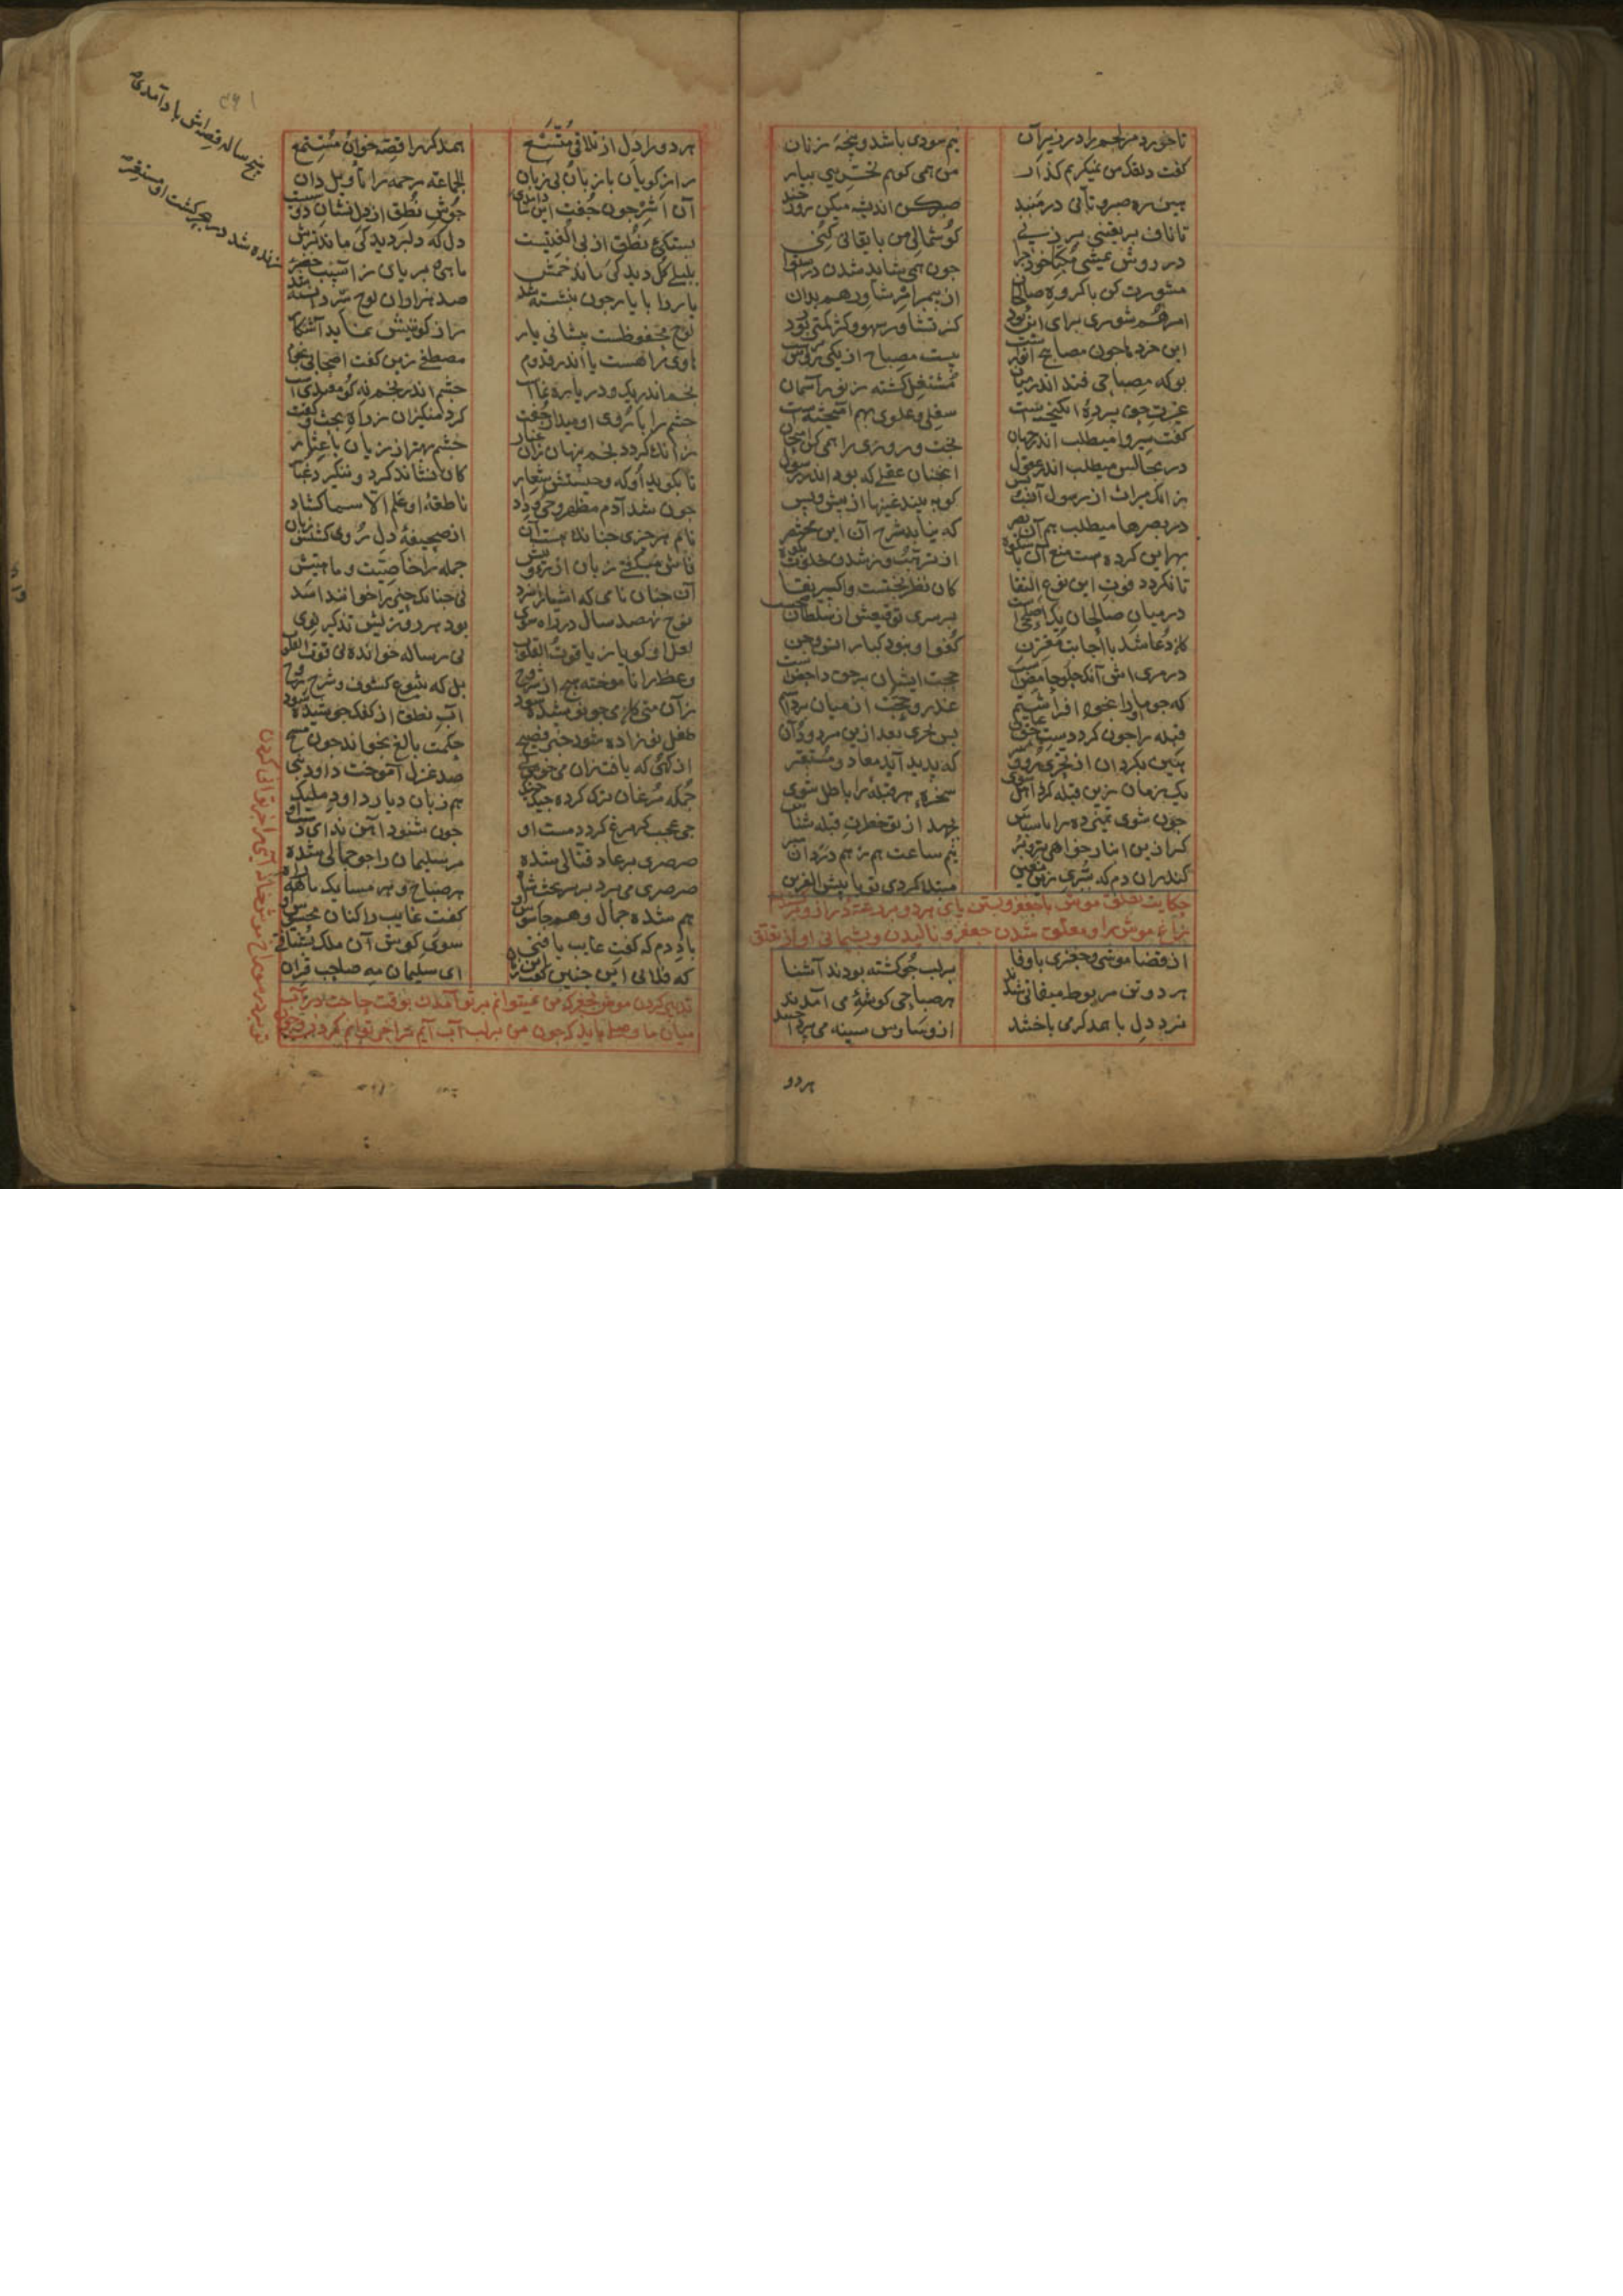 تا خورد مر خصم را در زیر آن نیم سودی باشد و پنجه زیان
گفت دلقک من نمیگریم گذار من همی گویم تحری بیار
هین ره صبر و تأنی در مبند صبر کن اندیشه میکن روز چند
تا نافت بر یقینی بر زنی گوشمالی من بایقانی کنی
در روش یمشی مکبا خود چرا چون همی شاید شدن در استوا
مشورت کن با گروه صالحان از پیمبر امر شاورهم بدان
امرهم شوری برای این بود کز تشاور سهو و کژ کمتر بود
این خردها چون مصابیح انورست بیست مصباح از یکی روشنترست
بوکه مصباحی فتد اندر میان مشتعل گشته ز نور آسمان
غیرت حق پرده انگیختست سفلی و علوی بهم آمیختست
گفت سیروا میطلب اندر جهان بخت و روزی را همی کن امتحان
در مجالس میطلب اندر عقول آنچنان عقلی که بود اندر رسول
زانک میراث از رسول آنست بس کو ببیند غیبها از پیش و پس
در بصرها میطلب هم آن بصر که نیابد شرح آن این مختصر
بهر این کردست منع آن با شکوه از ترهب وز شدن خلوت بکوه
تا نگردد فوت این نوع التقا کان نظر بختست و اکسیر بقا
در میان صالحان یک اصلحیست بر سر توقیعش از سلطان صحیست
کان دعا شد با اجابت مقترن کفو او نبود کبار انس و جن
در مری اش آنک حلو حامض است حجت ایشان بر حق داحض است
که چو ما او را بخود افراشتیم عذر و حجت از میان برداشتیم
قبله را چون کرد دست حق عیان پس تحری بعد ازین مردود دان
هین بگردان از تحری رو و سر که پدید آید معاد و مستقر
یک زمان زین قبله گر ذاهل شوی سخره هر قبله باطل شوی
چون شوی تمییزده را ناسپاس بجهد از تو خطرت قبله شناس
گر ازین انبار خواهی بر و بر نیم ساعت هم ز همدردان مبر
کاندران دم که ببری زین معین مبتلا گردی تو با بئس القرین
حکایت تعلق موش با چغز و بستن پای هر دو برشته دراز و برکشیدن
زاغ موش را و معلق شدن چغز و نالیدن و پشیمانی او از تعلق
از قضا موشی و چغزی با وفا بر لب جو گشته بودند آشنا
هر دو تن مربوط میقاتی شدند هر صباحی گوشه می آمدند
نرد دل با همدگر می باختند از وساوس سینه می پرداختند
هر دو
۳۶۱
هر دو را دل از تلاقی متسع همدگر را قصه خوان و مستمع
راز گویان با زبان بی زبان الجماعه رحمه را تاویل دان
آن اشر چون جفت این شاد آمدی پنج ساله قصه اش یاد آمدی
جوش نطق از دل نشان دوستیست بستگی نطق از بی الفتیست
دل که دلبر دید کی ماند ترش بلبلی گل دید کی ماند خمش
ماهی بریان ز آسیب خضر زنده شد در بحر گشت او مستقر
یار را با یار چون بنشسته شد صد هزاران لوح سر دانسته شد
لوح محفوظست پیشانی یار راز کونینش نماید آشکار
هادی راهست یار اندر قدوم مصطفی زین گفت اصحابی نجوم
نجم اندر ریگ و دریا رهنماست چشم اندر نجم نه کو مقتداست
چشم را با روی او میدار جفت گرد منگیزان ز راه بحث و گفت
زانک گردد نجم پنهان زان غبار چشم بهتر از زبان با عثار
تا بگوید او که وحیستش شعار کان نشاند گرد و ننگیزد غبار
چون شد آدم مظهر وحی و وداد ناطقه او علم الاسما گشاد
نام هر چیزی چنانک هست آن از صحیفه دل روی گشتش زبان
فاش میگفتی زبان از رویتش جمله را خاصیت و ماهیتش
آنچنان نامی که اشیا را سزد نی چنانک حیز را خواند اسد
نوح نهصد سال در راه سوی بود هر روزیش تذکیر نوی
لعل او گویا ز یاقوت القلوب نی رساله خوانده نی قوت القلوب
وعظ را ناموخته هیچ از شروح بل که ینبوع کشوف و شرح روح
زان می کان می چو نوشیده شود آب نطق از گنگ جوشیده شود
طفل نوزاده شود حبر فصیح حکمت بالغ بخواند چون مسیح
از کهی که یافت زان می خوش لبی صد غزل آموخت داود نبی
جمله مرغان ترک کرده جیک جیک هم زبان و یار داود ملیک
چی عجب که مرغ گردد مست او چون شنود آهن ندای دست او
صرصری بر عاد قتالی شده مر سلیمان را چو حمالی شده
صرصری می برد بر سر تخت شاه هر صباح و هر مسا یک ماهه راه
هم شده حمال و هم جاسوس او گفت غایب را کنان محسوس او
باد دم که گفت غایب یافتی سوی گوش آن ملک بشتافتی
که فلانی این چنین گفت این زمان ای سلیمان مه صاحب قران
تدبیر کردن موش بچغز که من نمیتوانم بر تو آمدن بوقت حاجت در آب
میان ما وصلتی باید که چون من بر لب آب آیم ترا خبر توانم کردن و چون